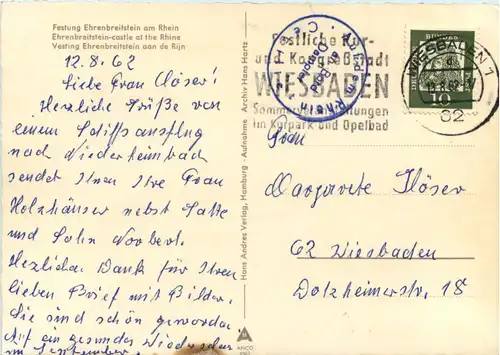 Festung Ehrenbreitstein am Rhein
Ehrenbreitstein-castle at the Rhine
Vesting Ehrenbreitstein aan de Rijn
12.8.62
Liebe Frau Clöser!
Herzliche Grüße von
einem Schiffsausflug
nach Niederheimbach
sendet Ihnen Ihre Frau
Holzhäuser nebst Gatte
und Sohn Norbert.
Herzlichen Dank für Ihren
lieben Brief mit Bilder.
Sie sind schön geworden
Auf ein gesundes Wiedersehen
im September
Hans Andres Verlag, Hamburg - Aufnahme Archiv Hans Hartz
ANCO
Festliche Kur-
und Kongreßstadt
WIESBADEN
im Kurpark und Opelbad
WIESBADEN 1
62
DEUTSCHE BUNDESPOST
10
Frau
Margarete Klöser
62 Wiesbaden
Dotzheimerstr. 18